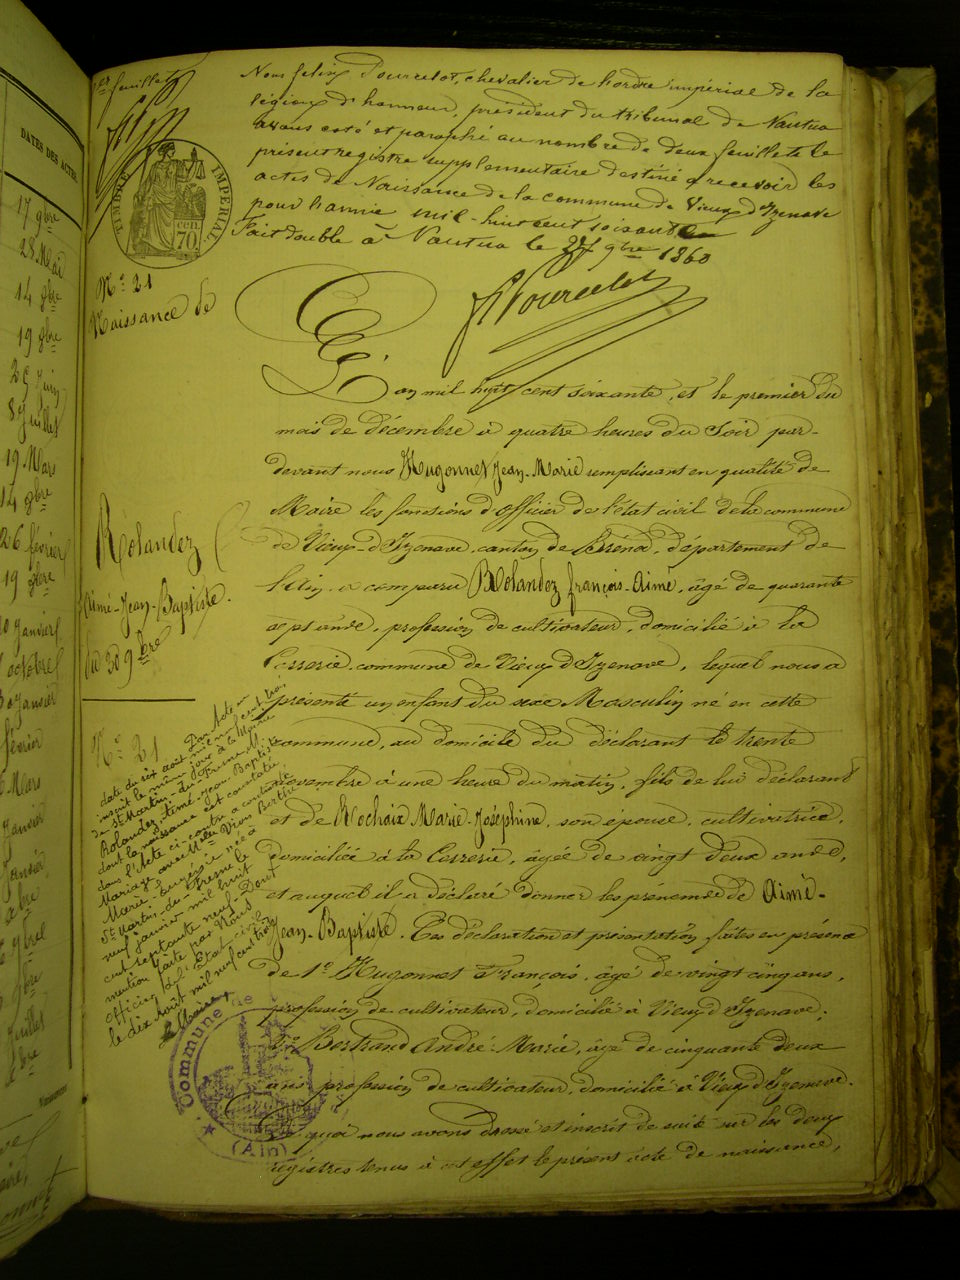 1er feuillet
Nous félix Pourcelot, chevalier de l'ordre impérial de la
légion d'honneur, président du tribunal de Nantua
avons coté et paraphé au nombre de deux feuillets le
présent registre supplémentaire destiné à recevoir les
actes de Naissance de la commune de Vieux d'Izenave
pour l'année mil-huit cent soixante
Fait double à Nantua le 27 9bre 1860
TIMBRE IMPÉRIAL
70 cen.
Pourcelot
N° 21
Naissance de
Rolandez
Aimé-Jean-Baptiste.
du 30 9bre
L'an mil huit cent soixante, et le premier du
mois de décembre à quatre heures du Soir par-
devant nous Hugonnet Jean-Marie remplissant en qualité de
Maire les fonctions d'officier de l'état civil de la commune
de Vieux-d'Izenave, canton de Brénod, département de
l'Ain, a comparu Rolandez françois-Aimé, âgé de quarante
sept ans, profession de cultivateur, domicilié à la
commune de Vieux d'Izenave, lequel nous a
présenté un enfant du sexe Masculin né en cette
commune, au domicile du déclarant le trente
novembre à une heure du matin, fils de lui déclarant
et de Rochaix Marie-Joséphine, son épouse, cultivatrice,
domiciliée à la âgée de vingt deux ans,
et auquel il a déclaré donner les prénoms de Aimé-
Jean-Baptiste. Ces déclaration et présentation faites en présence
de 1° Hugonnet François, âgé de vingt cinq ans,
profession de cultivateur, domicilié à Vieux d'Izenave.
2° Bertrand André-Marie, âgé de cinquante deux
ans profession de cultivateur, domicilié à Vieux d'Izenave.
quoi nous avons dressé et inscrit de suite sur les deux
registres tenus à cet effet le présent acte de naissance,
N° 21
Par Acte en
date du six août mil neuf cent trois
inscrit le même jour à la Mairie
de St Martin-du-Fresne M.
Rolandez Aimé-Jean-Baptiste
dont la naissance est constatée
dans l'Acte ci-contre a contracté
Mariage avec Melle Berthe
Marie née à
St Martin-du-Fresne le
neuf janvier mil huit
cent septante neuf Dont
mention faite par Nous
Officier de l'État civil
le dix Août mil neuf cent trois
Le Maire,
Commune de
(Ain)
DATES DES ACTES.
17 9bre
28 Mai
14 8bre
19 8bre
25 Juin
8 Juillet
19 Mars
14 9bre
26 février
19 9bre
janvier
octobre
janvier
février
Mars
Janvier